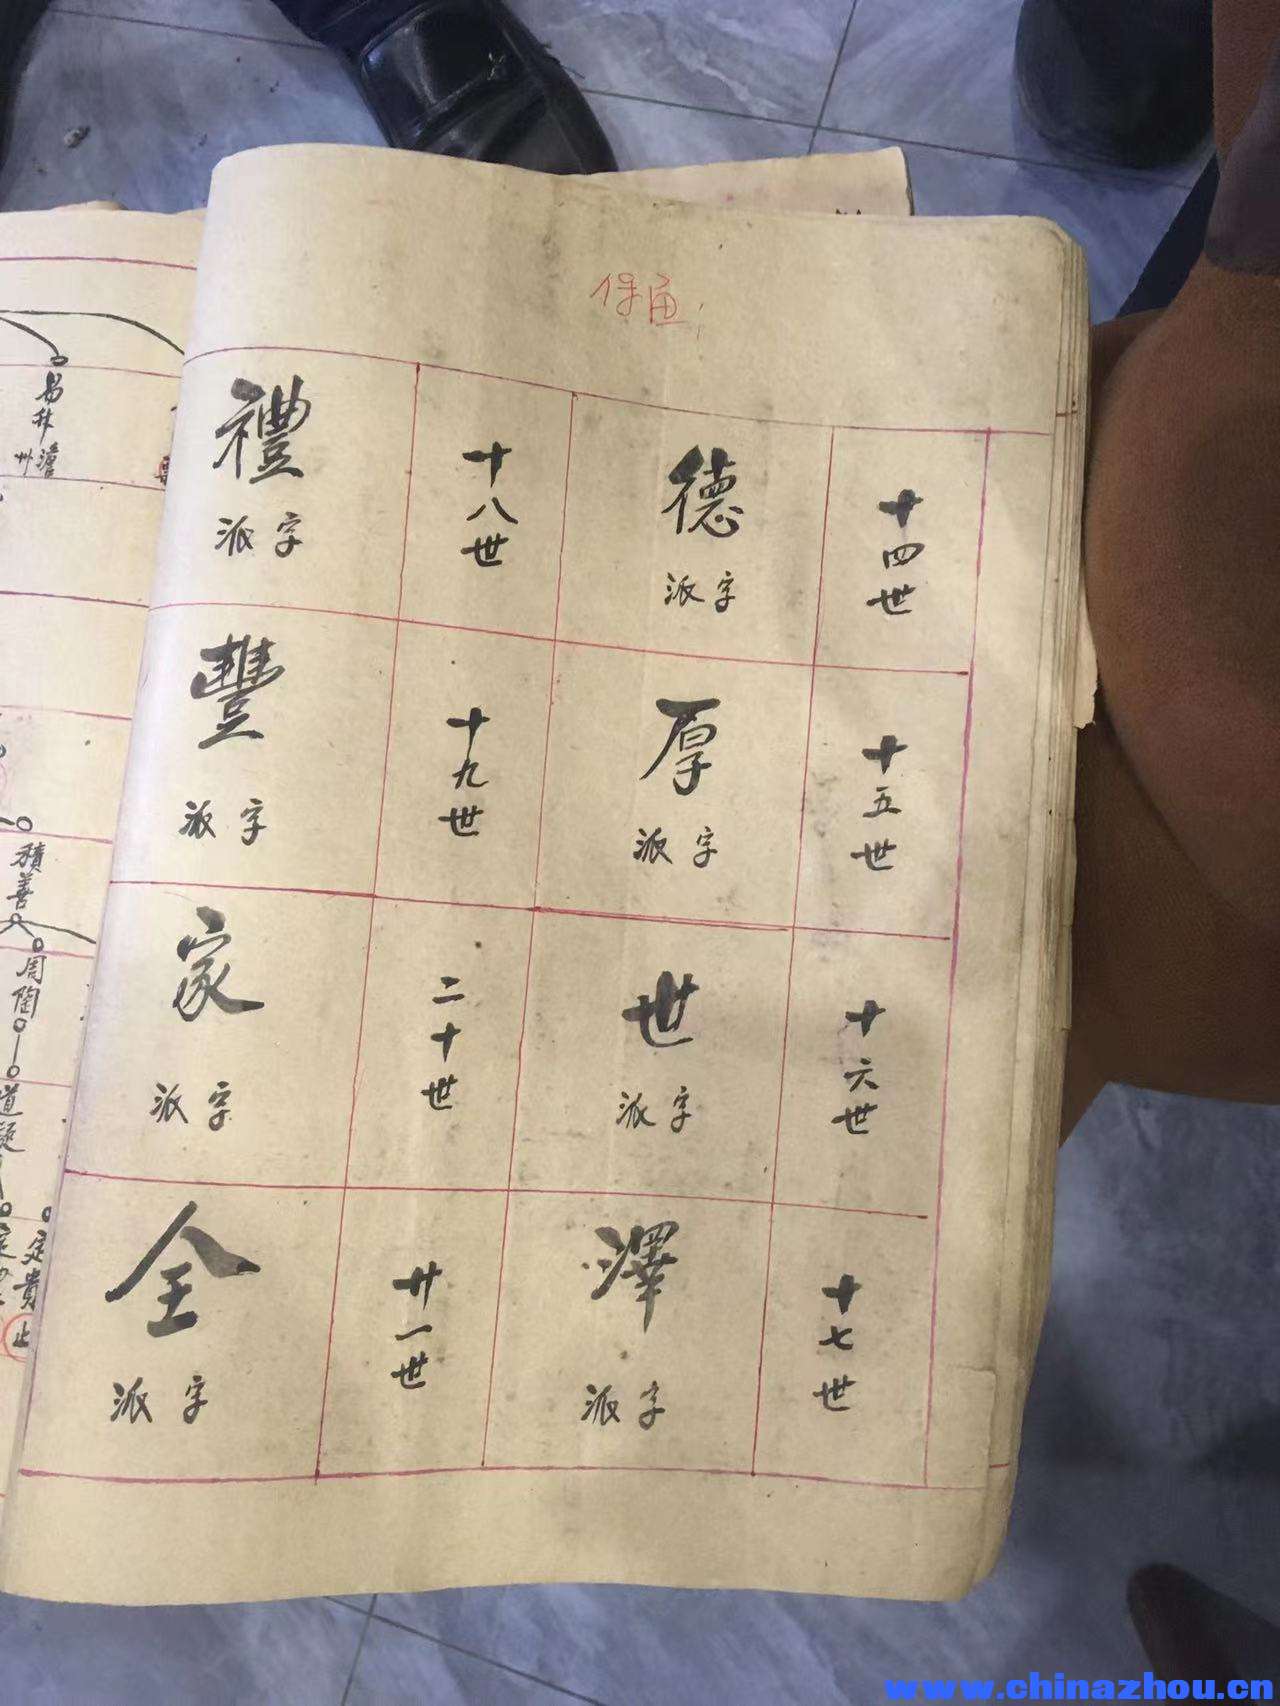 十四世
德
字派
十五世
厚
字派
十六世
世
字派
十七世
澤
字派
十八世
禮
字派
十九世
豐
字派
二十世
家
字派
廿一世
全
字派
積善
周陶
定貴
止
www.chinazhou.cn